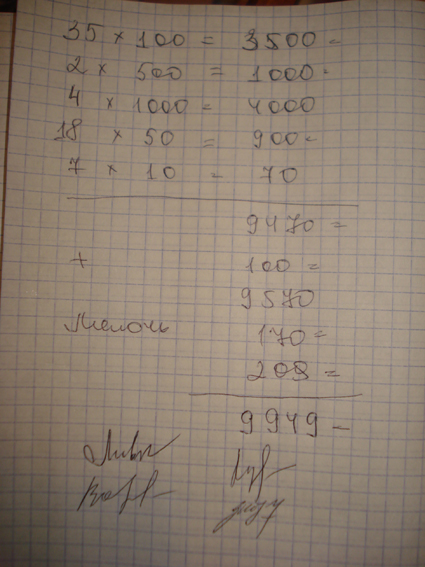 35 × 100 = 3500 =
2 × 500 = 1000 =
4 × 1000 = 4000
18 × 50 = 900 =
7 × 10 = 70
9470 =
+ 100 =
9570
Мелочь 170 =
209 =
9949 =